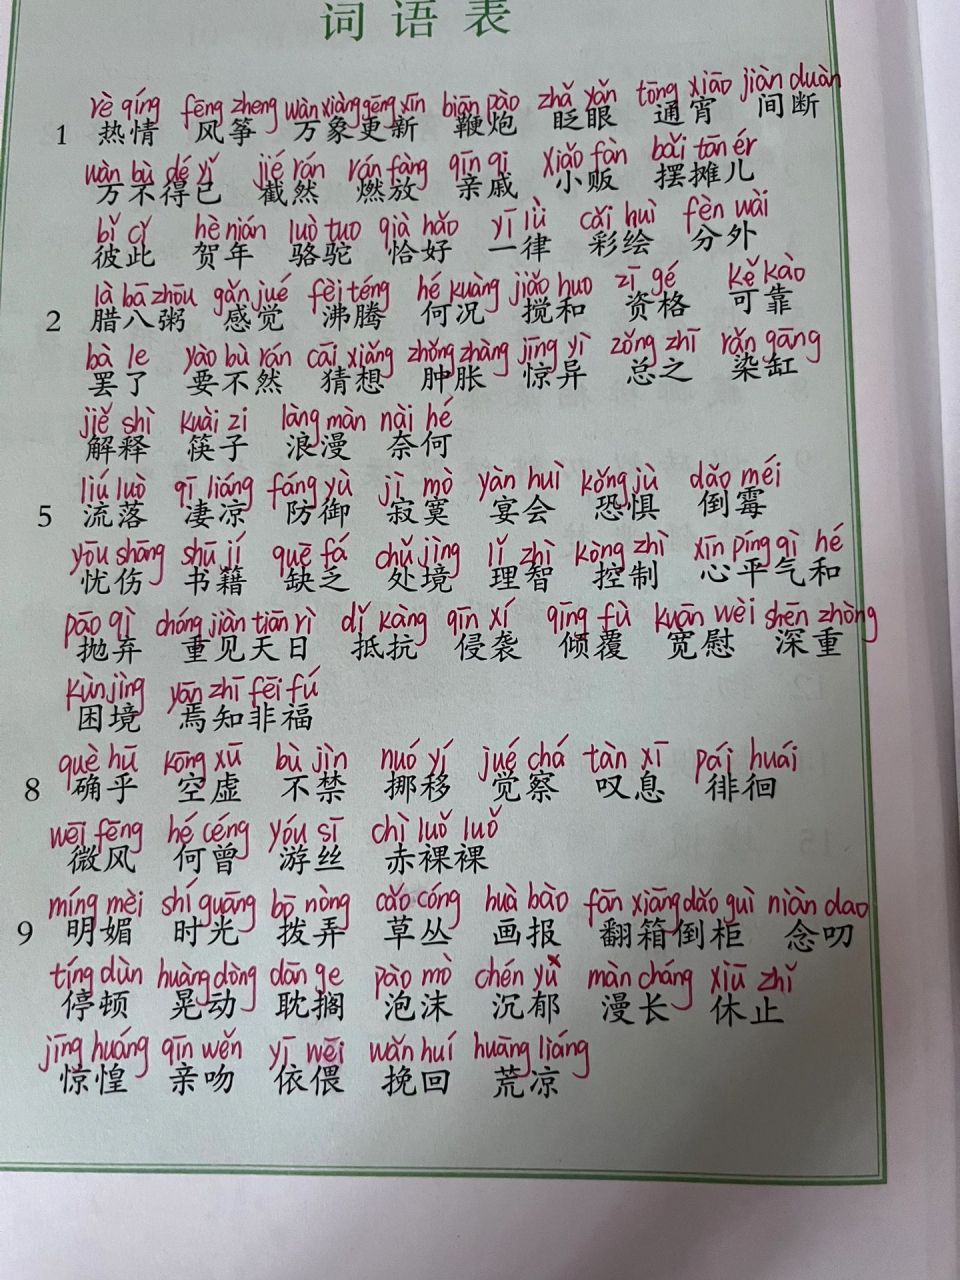 词语表
rè qíng fēng zheng wàn xiàng gēng xīn biān pào zhǎ yǎn tōng xiāo jiàn duàn
1 热情 风筝 万象更新 鞭炮 眨眼 通宵 间断
wàn bù dé yǐ jié rán rán fàng qīn qi xiǎo fàn bǎi tān ér
万不得已 截然 燃放 亲戚 小贩 摆摊儿
bǐ cǐ hè nián luò tuo qià hǎo yī lǜ cǎi huì fèn wài
彼此 贺年 骆驼 恰好 一律 彩绘 分外
là bā zhōu gǎn jué fèi téng hé kuàng jiǎo huo zī gé kě kào
2 腊八粥 感觉 沸腾 何况 搅和 资格 可靠
bà le yào bù rán cāi xiǎng zhǒng zhàng jīng yì zǒng zhī rǎn gāng
罢了 要不然 猜想 肿胀 惊异 总之 染缸
jiě shì kuài zi làng màn nài hé
解释 筷子 浪漫 奈何
liú luò qī liáng fáng yù jì mò yàn huì kǒng jù dǎo méi
5 流落 凄凉 防御 寂寞 宴会 恐惧 倒霉
yōu shāng shū jí quē fá chǔ jìng lǐ zhì kòng zhì xīn píng qì hé
忧伤 书籍 缺乏 处境 理智 控制 心平气和
pāo qì chóng jiàn tiān rì dǐ kàng qīn xí qīng fù kuān wèi shēn zhòng
抛弃 重见天日 抵抗 侵袭 倾覆 宽慰 深重
kùn jìng yān zhī fēi fú
困境 焉知非福
què hū kōng xū bù jìn nuó yí jué chá tàn xī pái huái
8 确乎 空虚 不禁 挪移 觉察 叹息 徘徊
wēi fēng hé céng yóu sī chì luǒ luǒ
微风 何曾 游丝 赤裸裸
míng mèi shí guāng bō nòng cǎo cóng huà bào fān xiāng dǎo guì niàn dao
9 明媚 时光 拨弄 草丛 画报 翻箱倒柜 念叨
tíng dùn huàng dòng dān ge pào mò chén yù màn cháng xiū zhǐ
停顿 晃动 耽搁 泡沫 沉郁 漫长 休止
jīng huáng qīn wěn yī wēi wǎn huí huāng liáng
惊惶 亲吻 依偎 挽回 荒凉